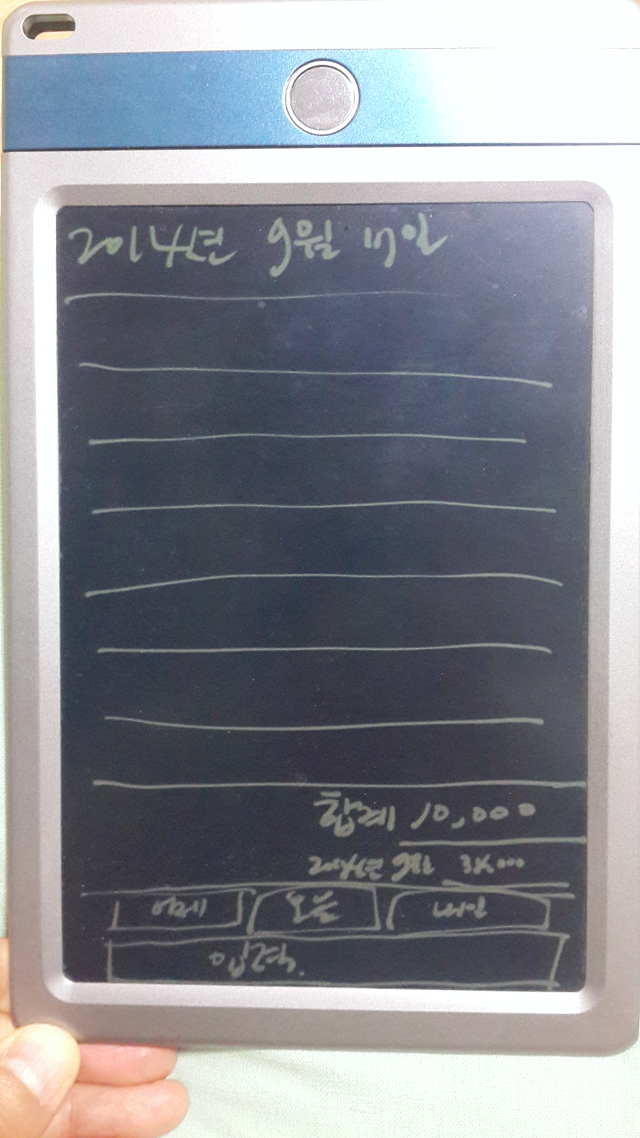 2014년 9월 17일
합계 10,000
2014년 9월
어제 오늘 내일
입력